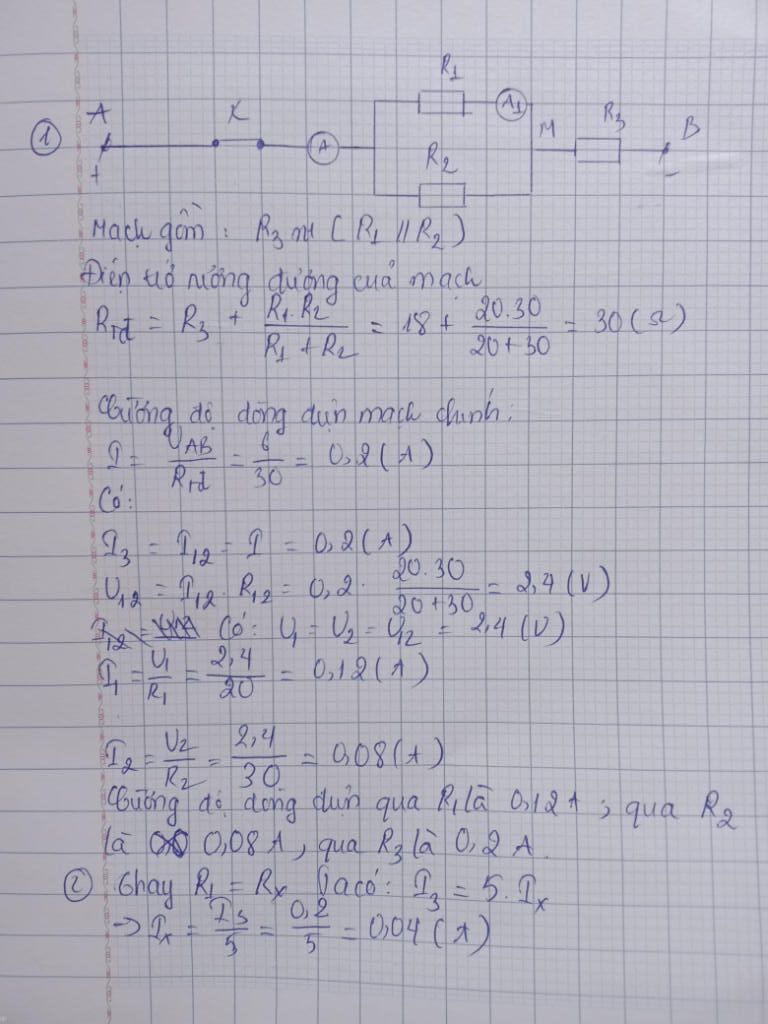 ①
A K A R1 A1 R2 M R3 B
+ -
Mạch gồm: R3 nt (R1 // R2)
Điện trở tương đương của mạch
Rtđ = R3 + R1.R2 / R1 + R2 = 18 + 20.30 / 20+30 = 30 (Ω)
Cường độ dòng điện mạch chính:
I = UAB / Rtđ = 6 / 30 = 0,2 (A)
Có:
I3 = I12 = I = 0,2 (A)
U12 = I12 . R12 = 0,2 . 20.30 / 20+30 = 2,4 (V)
Có: U1 = U2 = U12 = 2,4 (V)
I1 = U1 / R1 = 2,4 / 20 = 0,12 (A)
I2 = U2 / R2 = 2,4 / 30 = 0,08 (A)
Cường độ dòng điện qua R1 là 0,12 A, qua R2
là 0,08 A, qua R3 là 0,2 A.
② Thay R1 = Rx Ta có: I3 = 5. Ix
→ Ix = I3 / 5 = 0,2 / 5 = 0,04 (A)